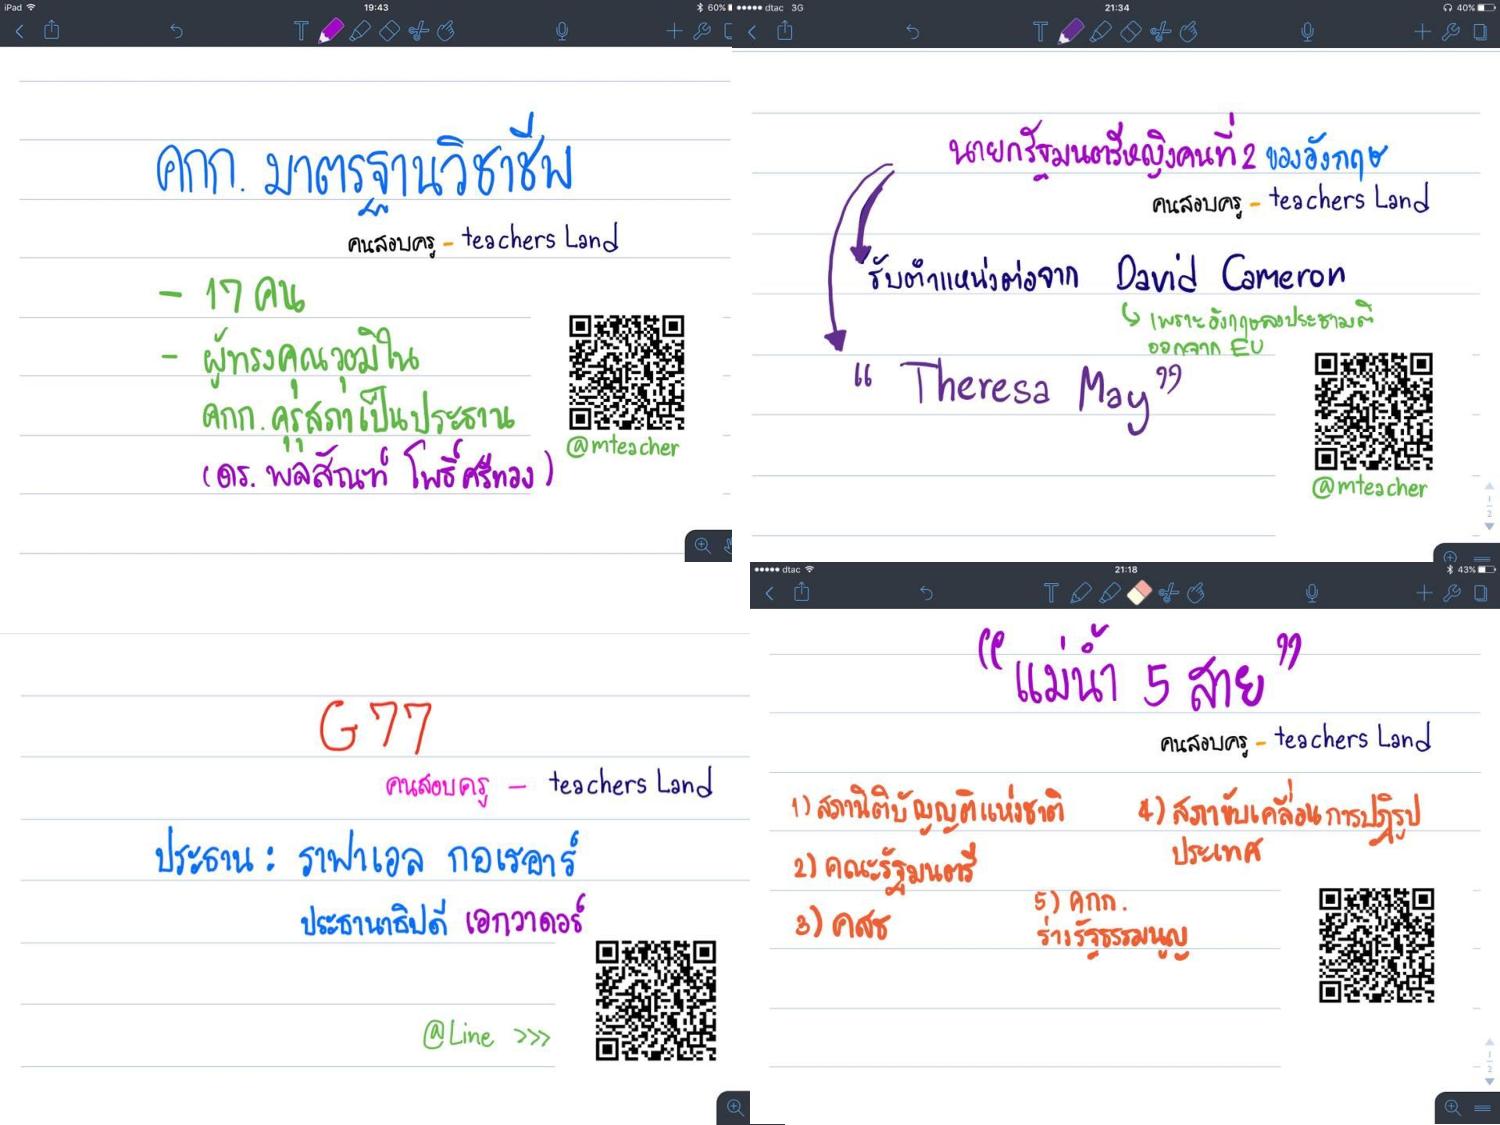 iPad
19:43
60%
คกก. มาตรฐานวิชาชีพ
คนสอบครู - teachers Land
- 17 คน
- ผู้ทรงคุณวุฒิใน
คกก. คุรุสภาเป็นประธาน
(ดร. พลสัณห์ โพธิ์ศรีทอง)
@mteacher
dtac 3G
21:34
40%
นายกรัฐมนตรีหญิงคนที่ 2 ของอังกฤษ
คนสอบครู - teachers Land
รับตำแหน่งต่อจาก David Cameron
เพราะอังกฤษลงประชามติ
ออกจาก EU
“ Theresa May ”
@mteacher
1
2
G77
คนสอบครู - teachers Land
ประธาน : ราฟาเอล กอเรอาร์
ประธานาธิบดี เอกวาดอร์
@Line >>>
dtac
21:18
43%
“แม่น้ำ 5 สาย”
คนสอบครู - teachers Land
1) สภานิติบัญญัติแห่งชาติ
2) คณะรัฐมนตรี
3) คสช
4) สภาขับเคลื่อนการปฏิรูป
ประเทศ
5) คกก.
ร่างรัฐธรรมนูญ
1
2